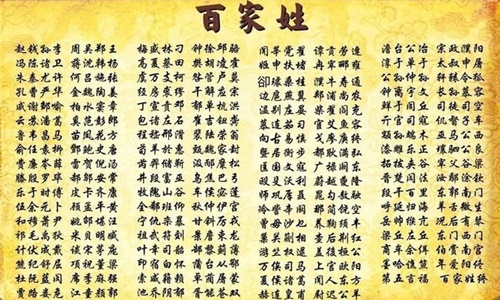 百家姓
赵钱孙李周吴郑王
冯陈褚卫蒋沈韩杨
朱秦尤许何吕施张
孔曹严华金魏陶姜
戚谢邹喻柏水窦章
云苏潘葛奚范彭郎
鲁韦昌马苗凤花方
俞任袁柳酆鲍史唐
费廉岑薛雷贺倪汤
滕殷罗毕郝邬安常
乐于时傅皮卞齐康
伍余元卜顾孟平黄
和穆萧尹姚邵湛汪
祁毛禹狄米贝明臧
计伏成戴谈宋茅庞
熊纪舒屈项祝董梁
杜阮蓝闵席季麻强
贾路娄危江童颜郭
梅盛林刁钟徐邱骆
高夏蔡田樊胡凌霍
虞万支柯昝管卢莫
经房裘缪干解应宗
丁宣贲邓郁单杭洪
包诸左石崔吉钮龚
程嵇邢滑裴陆荣翁
荀羊於惠甄曲家封
芮羿储靳汲邴糜松
井段富巫乌焦巴弓
牧隗山谷车侯宓蓬
全郗班仰秋仲伊宫
宁仇栾暴甘钭厉戎
祖武符刘景詹束龙
叶幸司韶郜黎蓟薄
印宿白怀蒲邰从鄂
索咸籍赖卓蔺屠蒙
池乔阴郁胥能苍双
闻莘党翟谭贡劳逄
姬申扶堵冉宰郦雍
郤璩桑桂濮牛寿通
边扈燕冀郏浦尚农
温别庄晏柴瞿阎充
慕连茹习宦艾鱼容
向古易慎戈廖庾终
暨居衡步都耿满弘
匡国文寇广禄阙东
欧殳沃利蔚越夔隆
师巩厍聂晁勾敖融
冷訾辛阚那简饶空
曾毋沙乜养鞠须丰
巢关蒯相查后荆红
游竺权逯盖益桓公
万俟司马上官欧阳
夏侯诸葛闻人东方
赫连皇甫尉迟公羊
澹台公冶宗政濮阳
淳于单于太叔申屠
公孙仲孙轩辕令狐
钟离宇文长孙慕容
鲜于闾丘司徒司空
亓官司寇仉督子车
颛孙端木巫马公西
漆雕乐正壤驷公良
拓跋夹谷宰父谷梁
晋楚闫法汝鄢涂钦
段干百里东郭南门
呼延归海羊舌微生
岳帅缑亢况郈有琴
梁丘左丘东门西门
商牟佘佴伯赏南宫
墨哈谯笪年爱阳佟
第五言福百家姓终